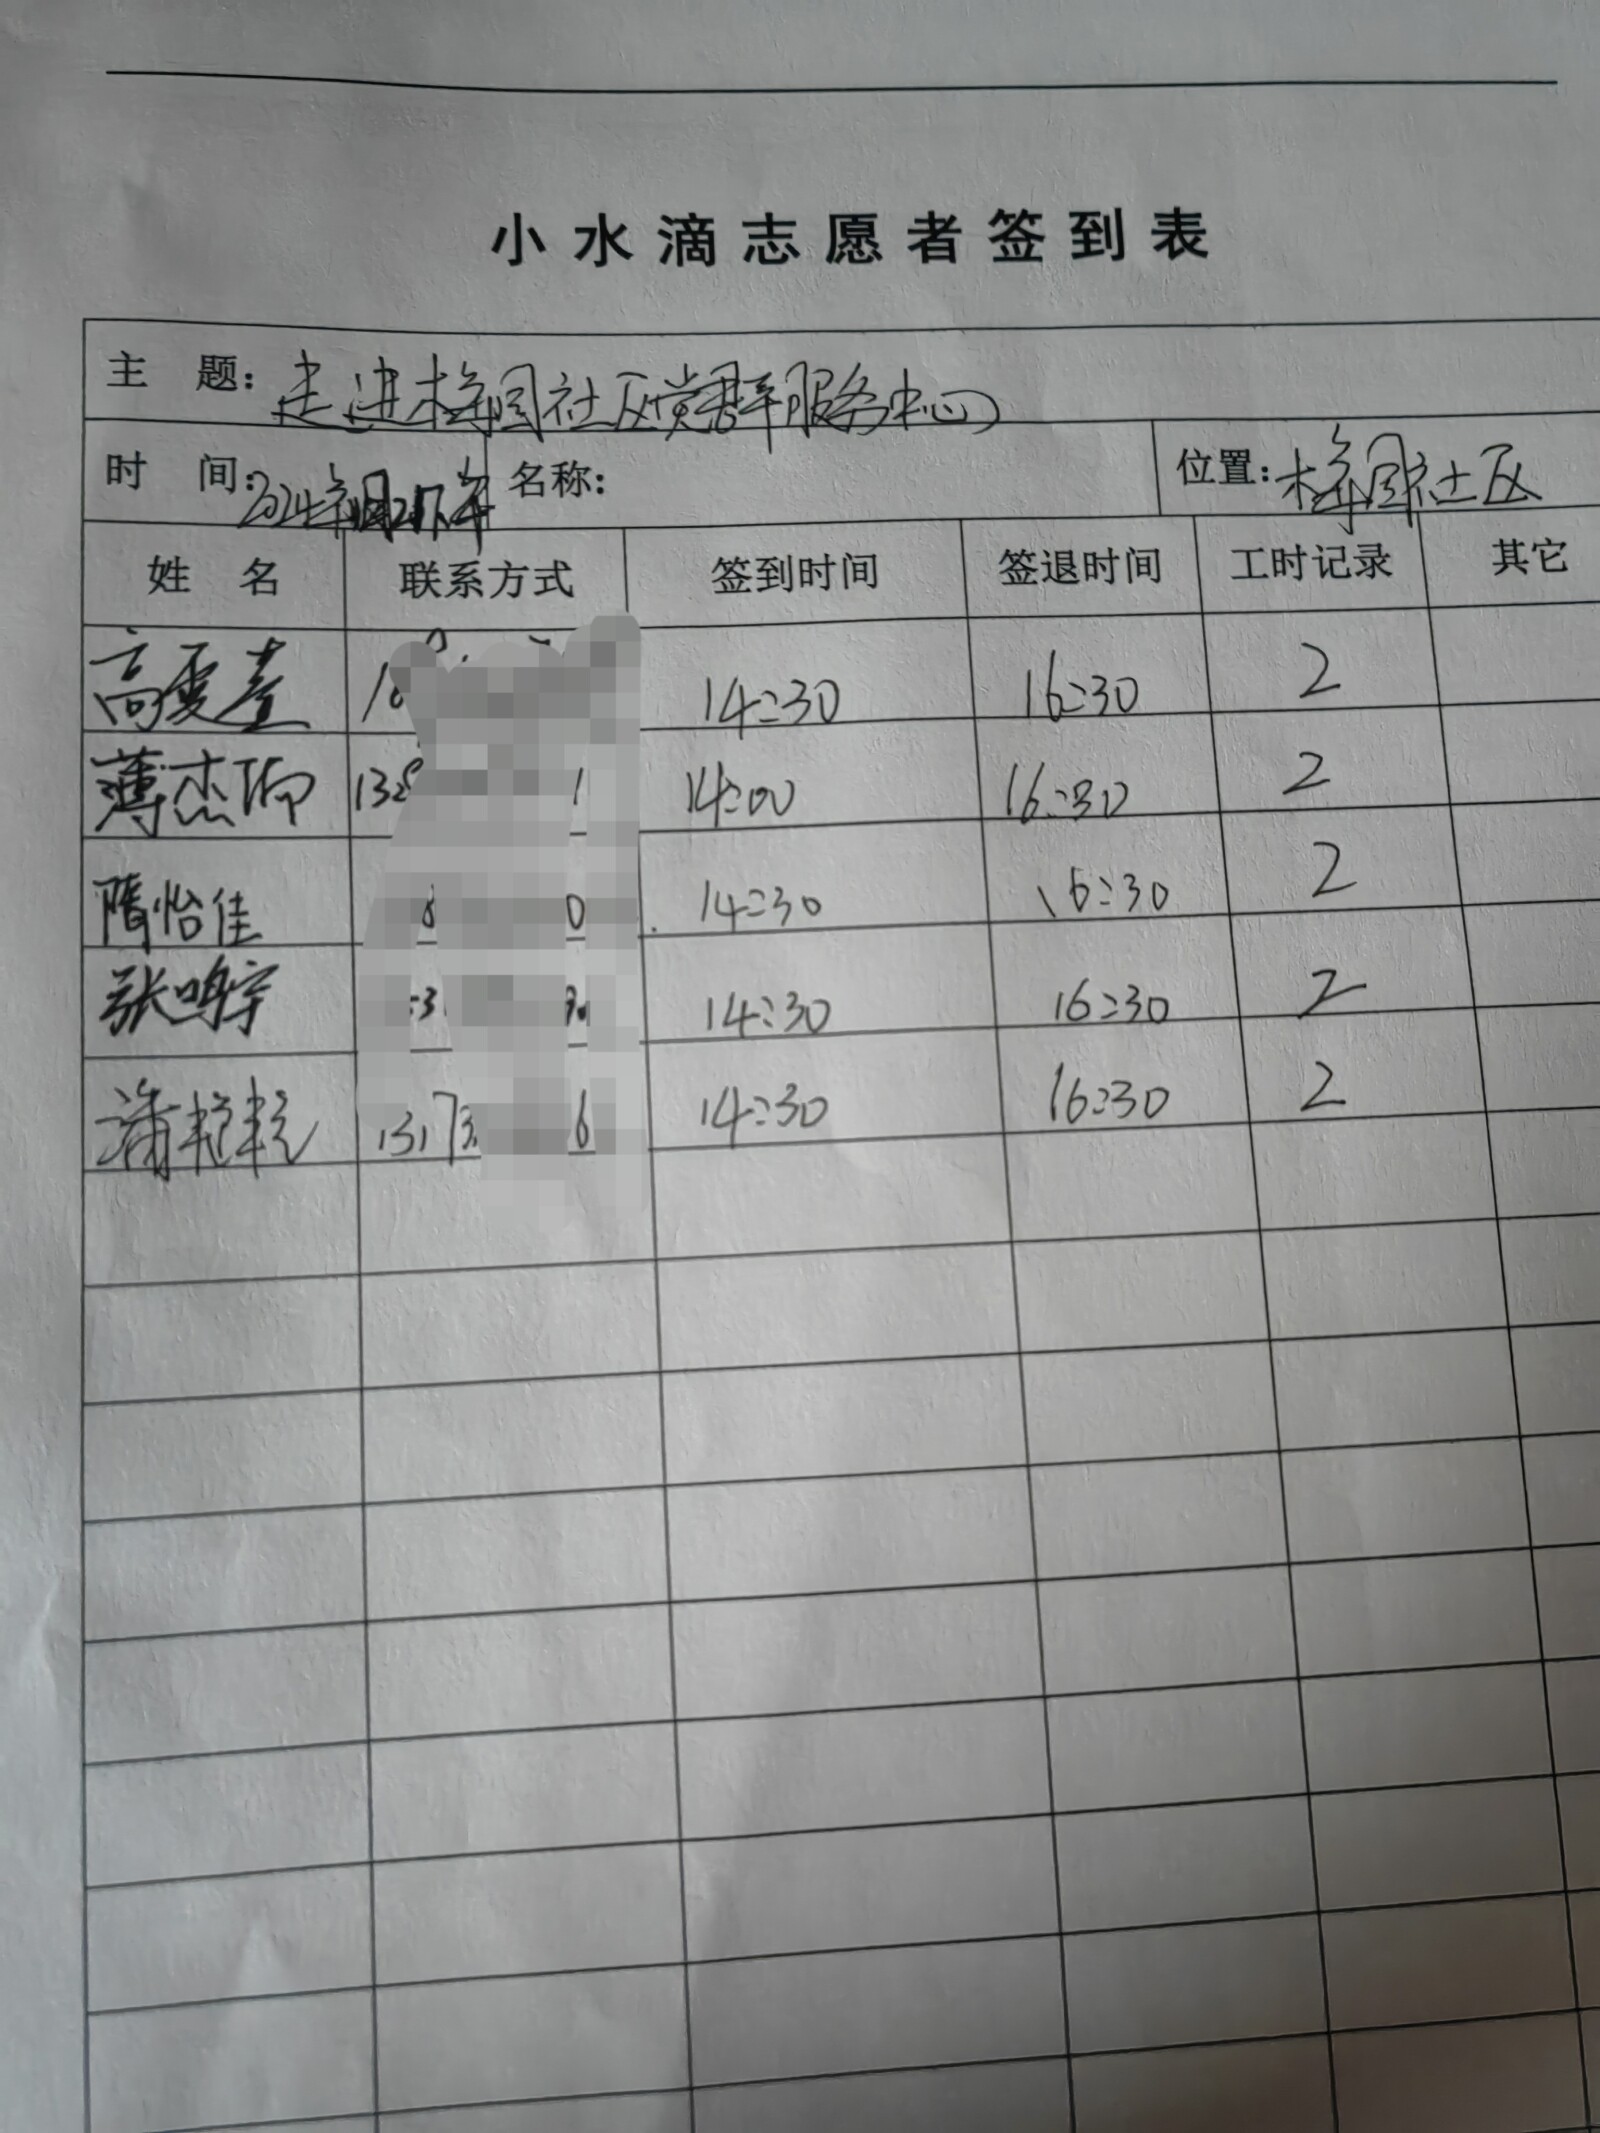 小水滴志愿者签到表
主 题：走进梅园社区党群服务中心
时 间：2024年 名称： 位置：梅园社区
姓 名 联系方式 签到时间 签退时间 工时记录 其它
高 14:30 16:30 2
薄杰 132 1 14:00 16:30 2
隋怡佳 8 0 14:30 16:30 2
张鸣宇 14:30 16:30 2
蒲 13173 6 14:30 16:30 2